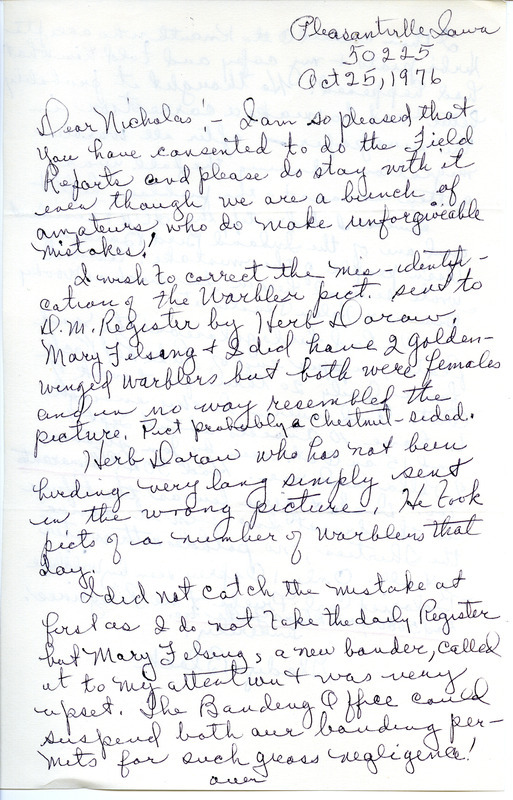 Pleasantville Iowa
50225
Oct 25, 1976
Dear Nicholas! - I am so pleased that
you have consented to do the Field
Reports and please do stay with it
even though we are a bunch of
amateurs, who do make unforgivable
mistakes!
I wish to correct the mis-identifi-
cation of the Warbler pict. sent to
D.M. Register by Herb Dorow.
Mary Felsing & I did have 2 Golden-
winged warblers but both were females
and in no way resembled the
picture. Pict probably a Chestnut-sided.
Herb Dorow who has not been
birding very long simply sent
in the wrong picture. He took
picts of a number of warblers that
day.
I did not catch the mistake at
first as I do not take the daily Register
but Mary Felsing, a new bander, called
it to my attention & was very
upset. The Banding Office could
suspend both our banding per-
mits for such gross negligence!
over